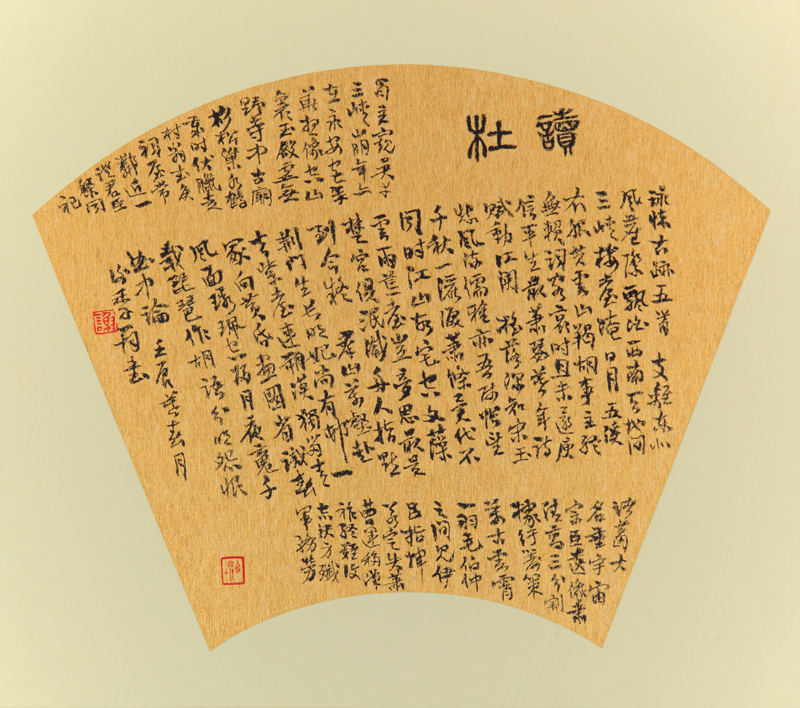 讀杜
詠懷古跡五首 支離東北
風塵際飄泊西南天地間
三峽樓臺淹日月五溪
衣服共雲山羯胡事主終
無賴詞客哀時且未還庾
信平生最蕭瑟暮年詩
賦動江關 搖落深知宋玉
悲風流儒雅亦吾師悵望
千秋一灑淚蕭條異代不
同時江山故宅空文藻
雲雨荒臺豈夢思最是
楚宮俱泯滅舟人指點
到今疑 群山萬壑赴
荊門生長明妃尚有邨一
去紫臺連朔漠獨留青
冢向黃昏畫圖省識春
風面環珮空歸月夜魂千
載琵琶作胡語分明怨恨
曲中論 壬辰年春月
書
蜀主窺吳幸
三峽崩年亦
在永安宮翠
華想像空山
裏玉殿虛無
野寺中古廟
杉松巢水鶴
歲時伏臘走
村翁武侯
祠屋常
鄰近一
體君臣
祭同
祀
諸葛大
名垂宇宙
宗臣遺像肅
清高三分割
據紆籌策
萬古雲霄
一羽毛伯仲
之間見伊
呂指揮
若定失蕭
曹運移漢
祚終難復
志決身殲
軍務勞